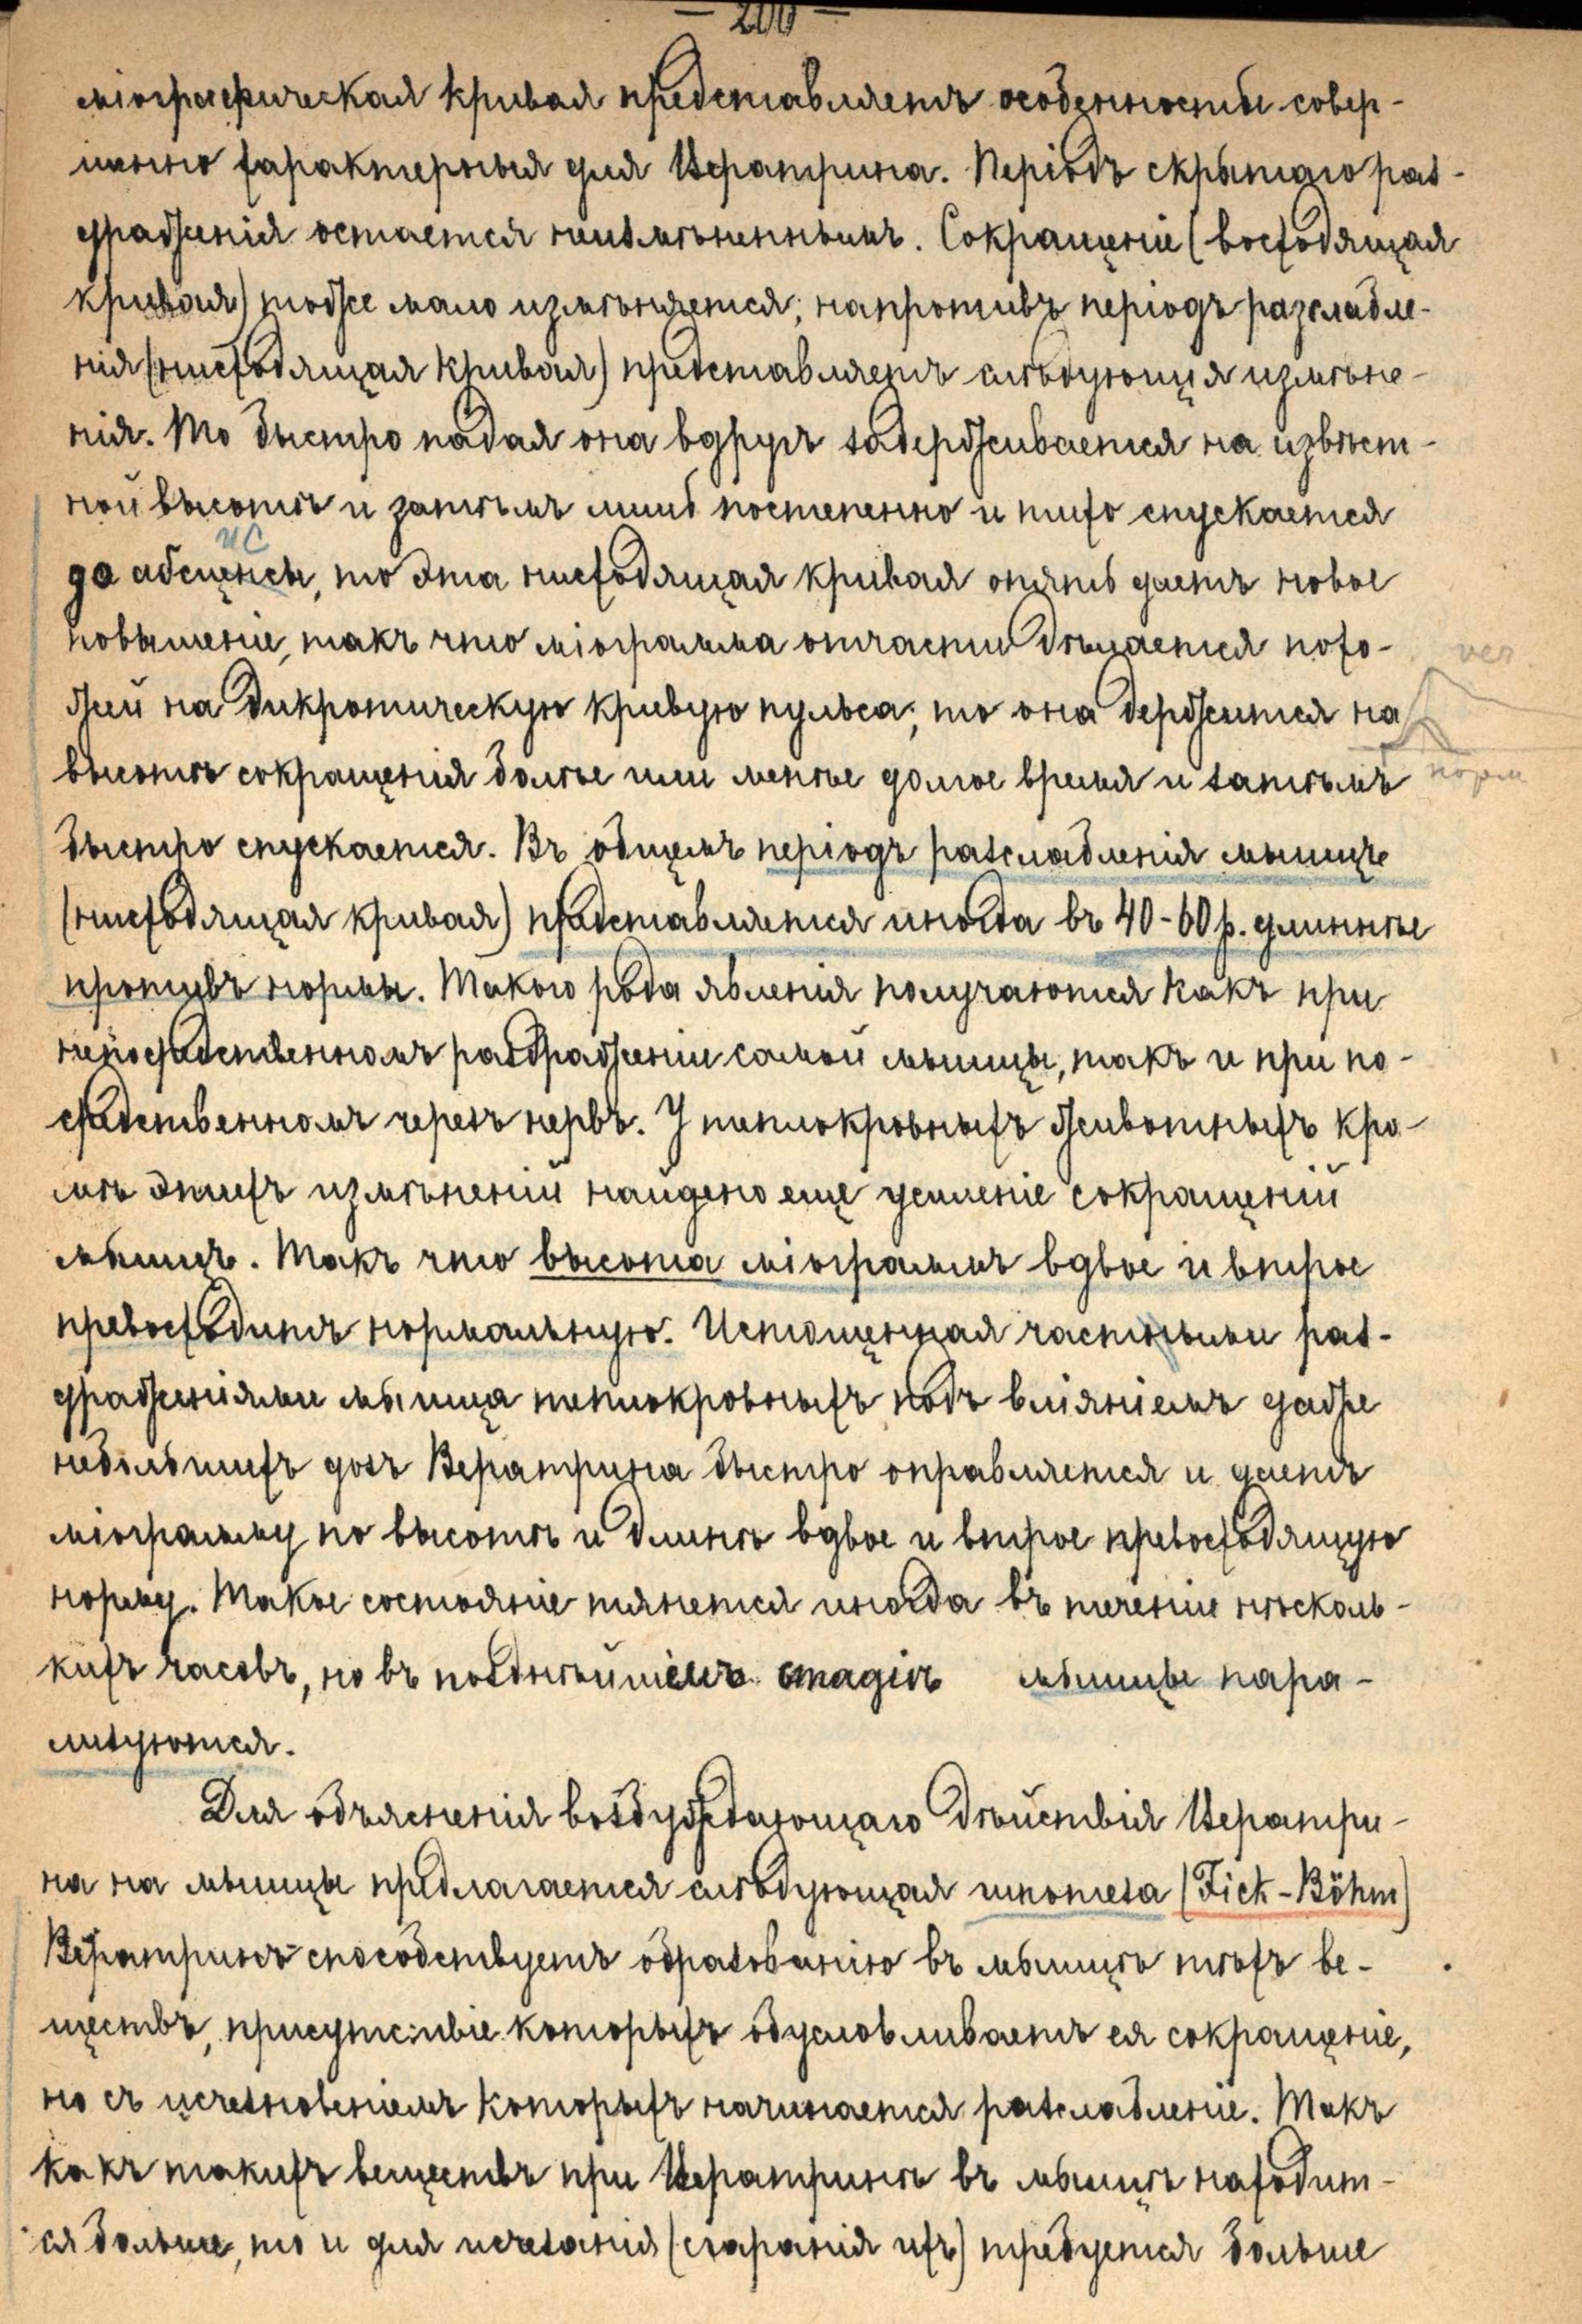 — 200 —
міографическая кривая представляетъ особенности совер-
шенно характерныя для Вератрина. Періодъ скрытаго раз-
драженія остается неизмѣненнымъ. Сокращеніе (восходящая
кривая) тоже мало измѣняется; напротивъ періодъ разслабле-
нія (нисходящая кривая) представляетъ слѣдующія измѣне-
нія. То быстро падая она вдругъ задерживается на извѣст-
ной высотѣ и затѣмъ лишь постепенно и тихо спускается
ис
до абсценсы, то эта нисходящая кривая опять даетъ новое
повышеніе, такъ что міограмма отчасти дѣлается похо-
вер
жей на дикротическую кривую пульса; то она держится на
высотѣ сокращенія болѣе или менѣе долгое время и затѣмъ
норм
быстро спускается. Въ общемъ періодъ разслабленія мышцы
(нисходящая кривая) представляется иногда въ 40-60 р. длиннѣе
противъ нормы. Такого рода явленія получаются какъ при
непосредственномъ раздраженіи самой мышцы, такъ и при по-
средственномъ черезъ нервъ. У теплокровныхъ животныхъ кро-
мѣ этихъ измѣненій найдено еще усиленіе сокращеній
мышцъ. Такъ что высота міограммъ вдвое и втрое
превосходитъ нормальную. Истощенная частыми раз-
драженіями мышца теплокровныхъ подъ вліяніемъ даже
небольшихъ дозъ Вератрина быстро оправляется и даетъ
міограмму по высотѣ и длинѣ вдвое и втрое превосходящую
норму. Такое состояніе тянется иногда въ теченіе нѣсколь-
кихъ часовъ, но въ позднѣйшемъ стадіѣ мышцы пара-
лизуются.
Для объясненія возбуждающаго дѣйствія Вератри-
на на мышцы предлагается слѣдующая гипотеза (Fick-Böhm)
Вератринъ способствуетъ образованію въ мышцѣ тѣхъ ве-
ществъ, присутствіе которыхъ обусловливаетъ ея сокращеніе,
но съ исчезновеніемъ которыхъ начинается разслабленіе. Такъ
какъ такихъ веществъ при Вератринѣ въ мышцѣ находит-
ся больше, то и для исчезанія (сгаранія ихъ) требуется больше